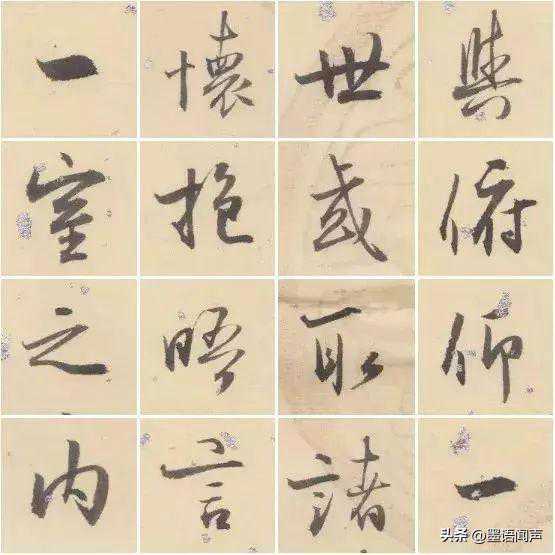 與俯仰一
世或取諸
懷抱晤言
一室之内
头条 @墨语闻声